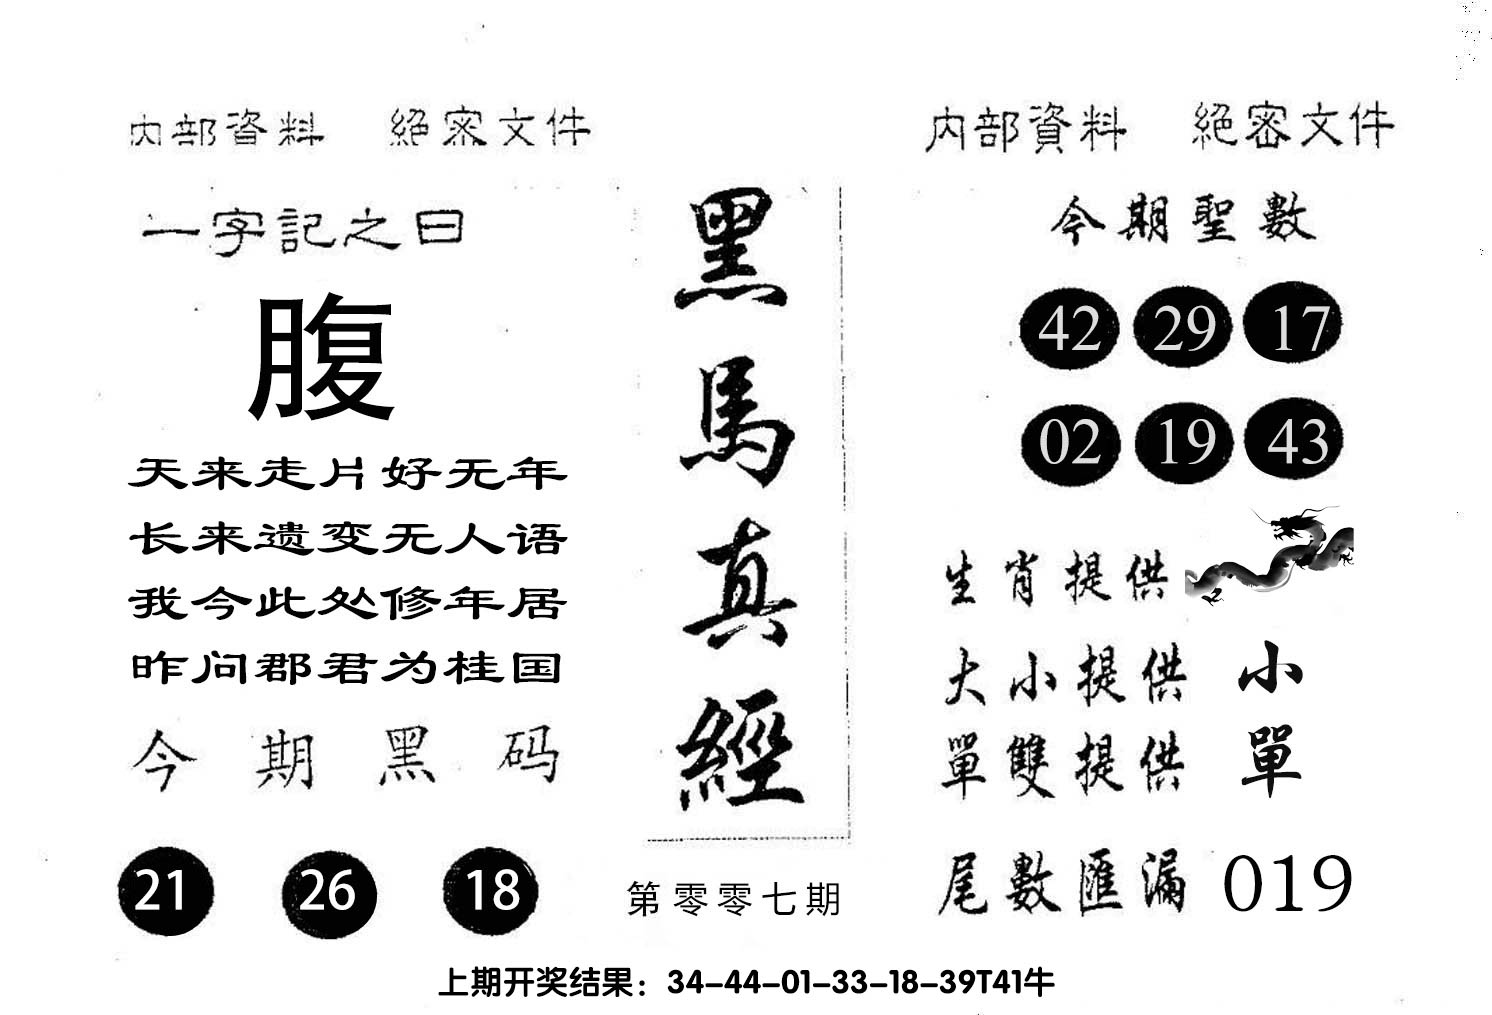 内部資料 絕密文件
一字記之曰
腹
天来走片好无年
长来遗变无人语
我今此处修年居
昨问郡君为桂国
今期黑码
21 26 18
黑馬真經
第零零七期
内部資料 絕密文件
今期聖數
42 29 17
02 19 43
生肖提供
大小提供 小
單雙提供 單
尾數匯漏 019
上期开奖结果：34-44-01-33-18-39T41牛